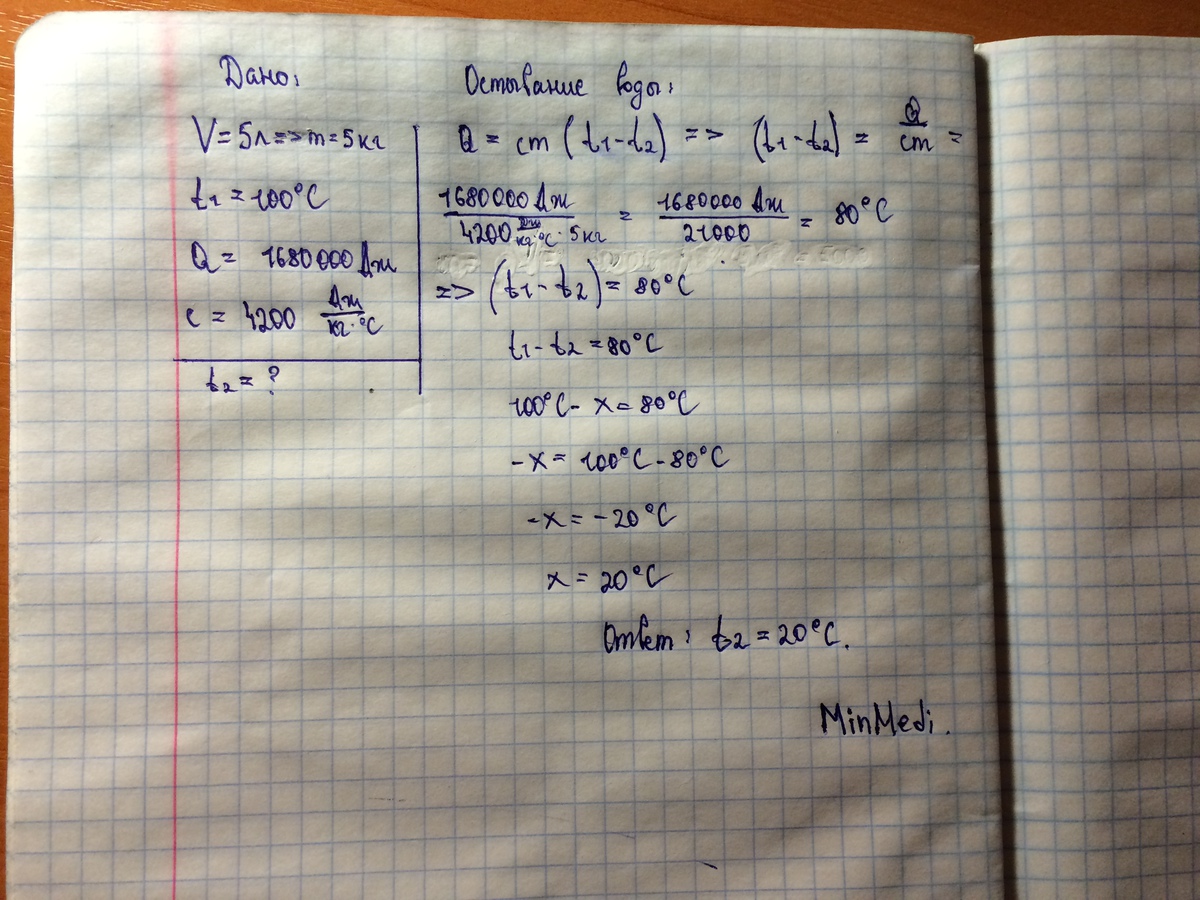 Дано:
V = 5л => m = 5 кг
t₁ = 100°C
Q = 1680000 Дж
c = 4200 Дж/кг·°C
t₂ = ?
Остывание воды:
Q = cm (t₁-t₂) => (t₁-t₂) = Q/cm =
1680000 Дж / 4200 Дж/кг·°C · 5кг = 1680000 Дж / 21000 = 80°C
=> (t₁-t₂) = 80°C
t₁-t₂ = 80°C
100°C - x = 80°C
-x = 100°C - 80°C
-x = -20°C
x = 20°C
Ответ: t₂ = 20°C.
MinMedi.